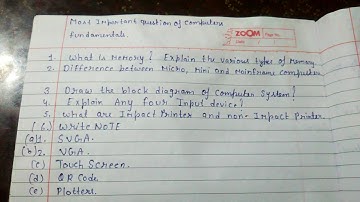 Most Important question of Computers
fundamentals.
ZOOM
1. What is Memory? Explain the various types of Memory.
2. Difference between Micro, Mini and Mainframe computers
3. Draw the block diagram of Computer System?
4. Explain Any four Input device?
5. What are Impact Printer and non-Impact Printer
(6.) Write NOTE
(a)1. SVGA.
(b)2. VGA.
(c) Touch Screen.
(d) QR Code.
(e) Plotters.